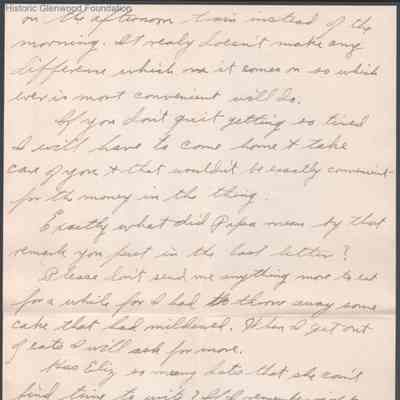 Historic Glenwood Foundation
on the afternoon train instead of the
morning. It realy doesn't make any
difference which one it comes on so which
ever is most convenient will do.
If you don't quit getting so tired
I will have to come home & take
care of you & that wouldn't be exactly convenient
for the money in the thing.
Exactly what did Papa mean by that
remark you put in the last letter?
Please don't send me anything more to eat
for a while for I had to throw away some
cake that had mildewed. When I get out
of eats I will ask for more.
Has Eliz so many dates that she can't
find time to write?